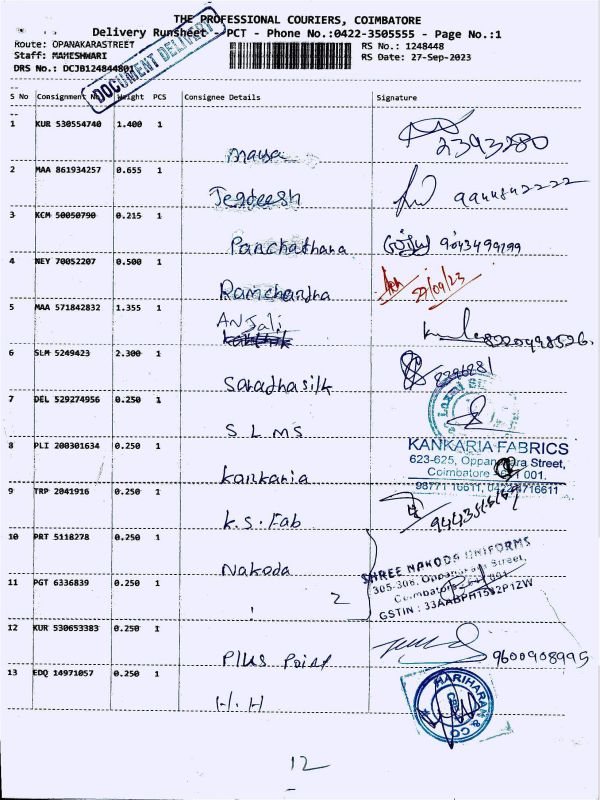 THE PROFESSIONAL COURIERS, COIMBATORE
Delivery Runsheet - PCT - Phone No.:0422-3505555 - Page No.:1
Route: OPANAKARASTREET
RS No.: 1248448
Staff: MAHESHWARI
RS Date: 27-Sep-2023
DRS No.: DCJB124844801
DOCUMENT DELIVERY
S No Consignment No Weight PCS Consignee Details Signature
1 KUR 530554740 1.400 1
Maya 2393280
2 MAA 861934257 0.655 1
Jegdeesh 9944842222
3 KCM 50050790 0.215 1
Panchathana 9043499199
4 NEY 70052207 0.500 1
Ramchandha 27/09/23
5 MAA 571842832 1.355 1
Anjali 8220498526.
6 SLM 5249423 2.300 1
Saradha silk
7 DEL 529274956 0.250 1
S L M S
8 PLI 200301634 0.250 1
KANKARIA FABRICS
623-625, Oppanakara Street,
Coimbatore - 641 001.
98771 16611, 04224716611
Kankaria
9 TRP 2041916 0.250 1
K.S. Fab
10 PRT 5118278 0.250 1
Nakoda
SHREE NAKODA UNIFORMS
305-306, Oppanakara Street,
Coimbatore - 641 001
11 PGT 6336839 0.250 1
2
12 KUR 530653383 0.250 1
Plus Point 9600908995
13 EDQ 14971057 0.250 1
H.H
HARIHARAN & CO
CBE
12